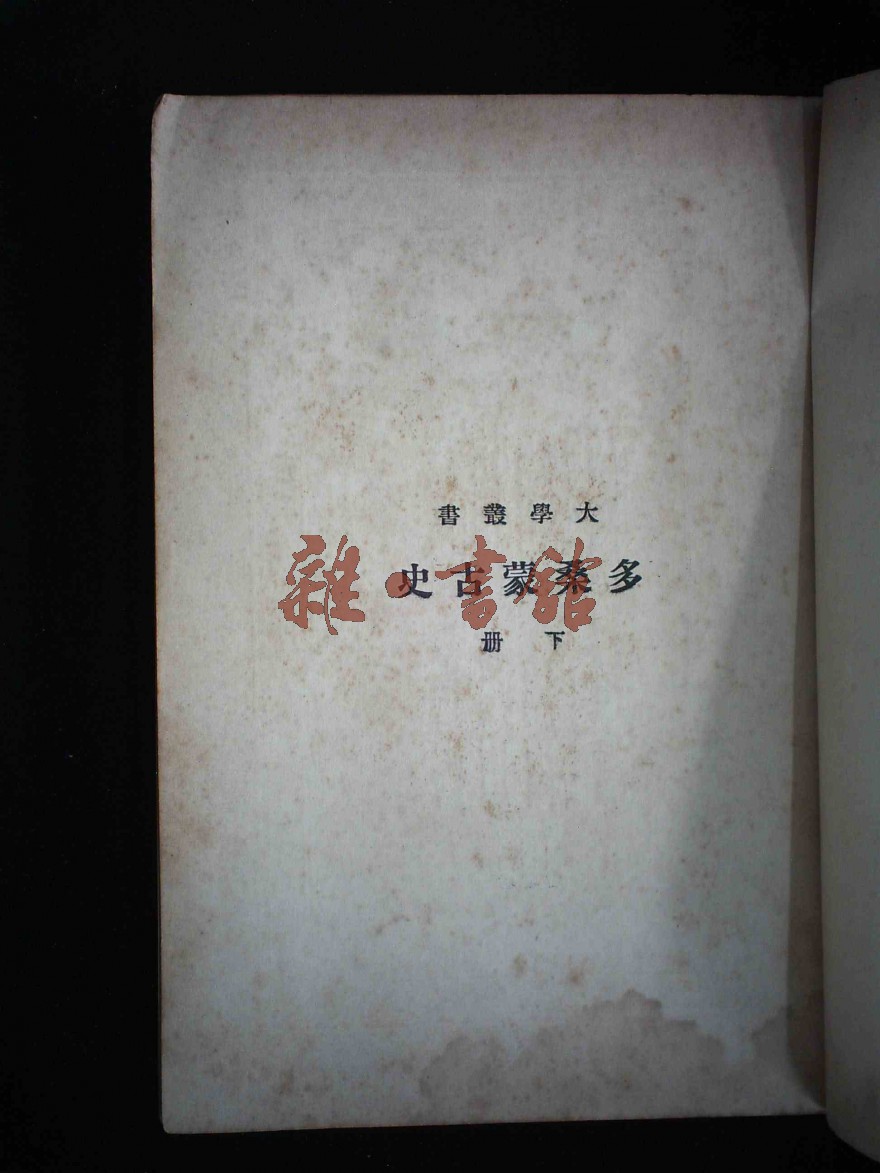 大學叢書
多桑蒙古史
下册
雜·書館